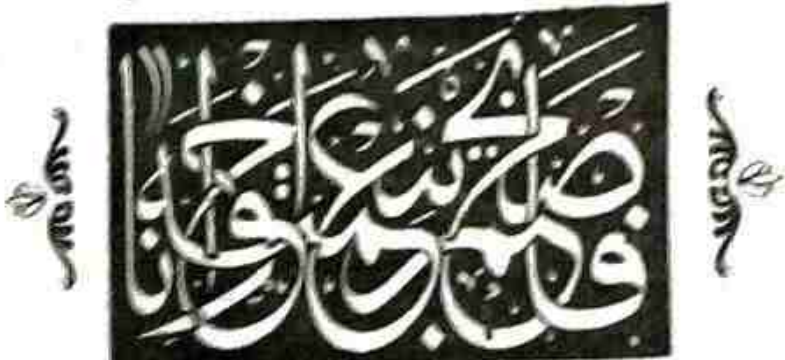 فاصبحتم بنعمته اخوانا